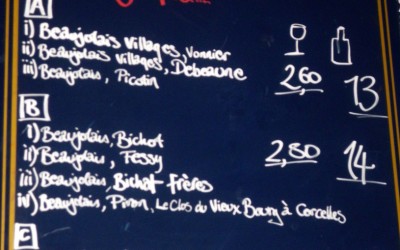 A
i) Beaujolais Villages, Vonnier
ii) Beaujolais Villages, Debeaune
iii) Beaujolais, Picotin
2,60
13
B
i) Beaujolais, Bichot
ii) Beaujolais, Fessy
2,80
14
iii) Beaujolais, Bichot-Frères
iv) Beaujolais, Piron, Le Clos du Vieux Bourg à Corcelles
C